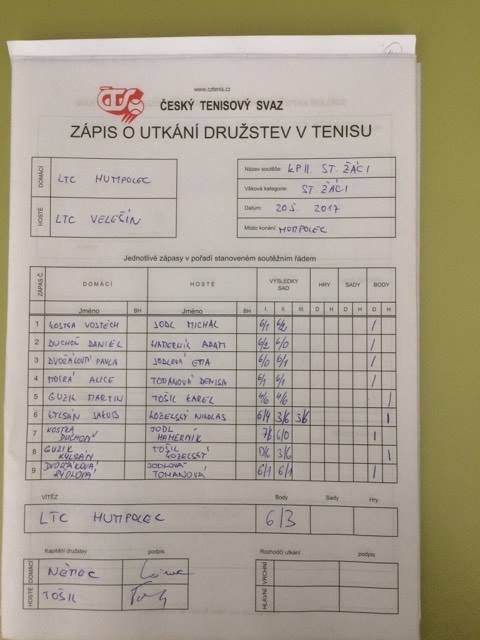 www.cztenis.cz
ČTS ČESKÝ TENISOVÝ SVAZ
ZÁPIS O UTKÁNÍ DRUŽSTEV V TENISU
DOMÁCÍ LTC HUMPOLEC
HOSTÉ LTC VELEŠÍN
Název soutěže: KP II. ST. ŽÁCI
Věková kategorie: ST. ŽÁCI
Datum: 20.5. 2017
Místo konání: HUMPOLEC
Jednotlivé zápasy v pořadí stanoveném soutěžním řádem
ZÁPAS Č. DOMÁCÍ HOSTÉ VÝSLEDKY SAD HRY SADY BODY
Jméno BH Jméno BH I. II. III. D H D H D H
1 KOSTRA VOJTĚCH JODL MICHAL 6/1 6/2 1
2 DUCHOŇ DANIEL HAMERNÍK ADAM 6/2 6/0 1
3 DVOŘÁKOVÁ PAVLA JODLOVÁ EMA 6/0 6/1 1
4 MOKRÁ ALICE TOMANOVÁ DENISA 6/1 6/1 1
5 GUZIK MARTIN TOŠIL KAREL 4/6 4/6 1
6 JAKUB NIKOLAS 6/4 3/6 3/6 1
7 KOSTRA DUCHOŇ JODL HAMERNÍK 6/0 1
8 GUZIK TOŠIL 3/6 1
9 DVOŘÁKOVÁ JODLOVÁ TOMANOVÁ 6/1 6/1 1
VÍTĚZ Body Sady Hry
LTC HUMPOLEC 6/3
Kapitáni družstev podpis Rozhodčí utkání podpis
DOMÁCÍ NĚMEC VRCHNÍ
HOSTÉ TOŠIL HLAVNÍ